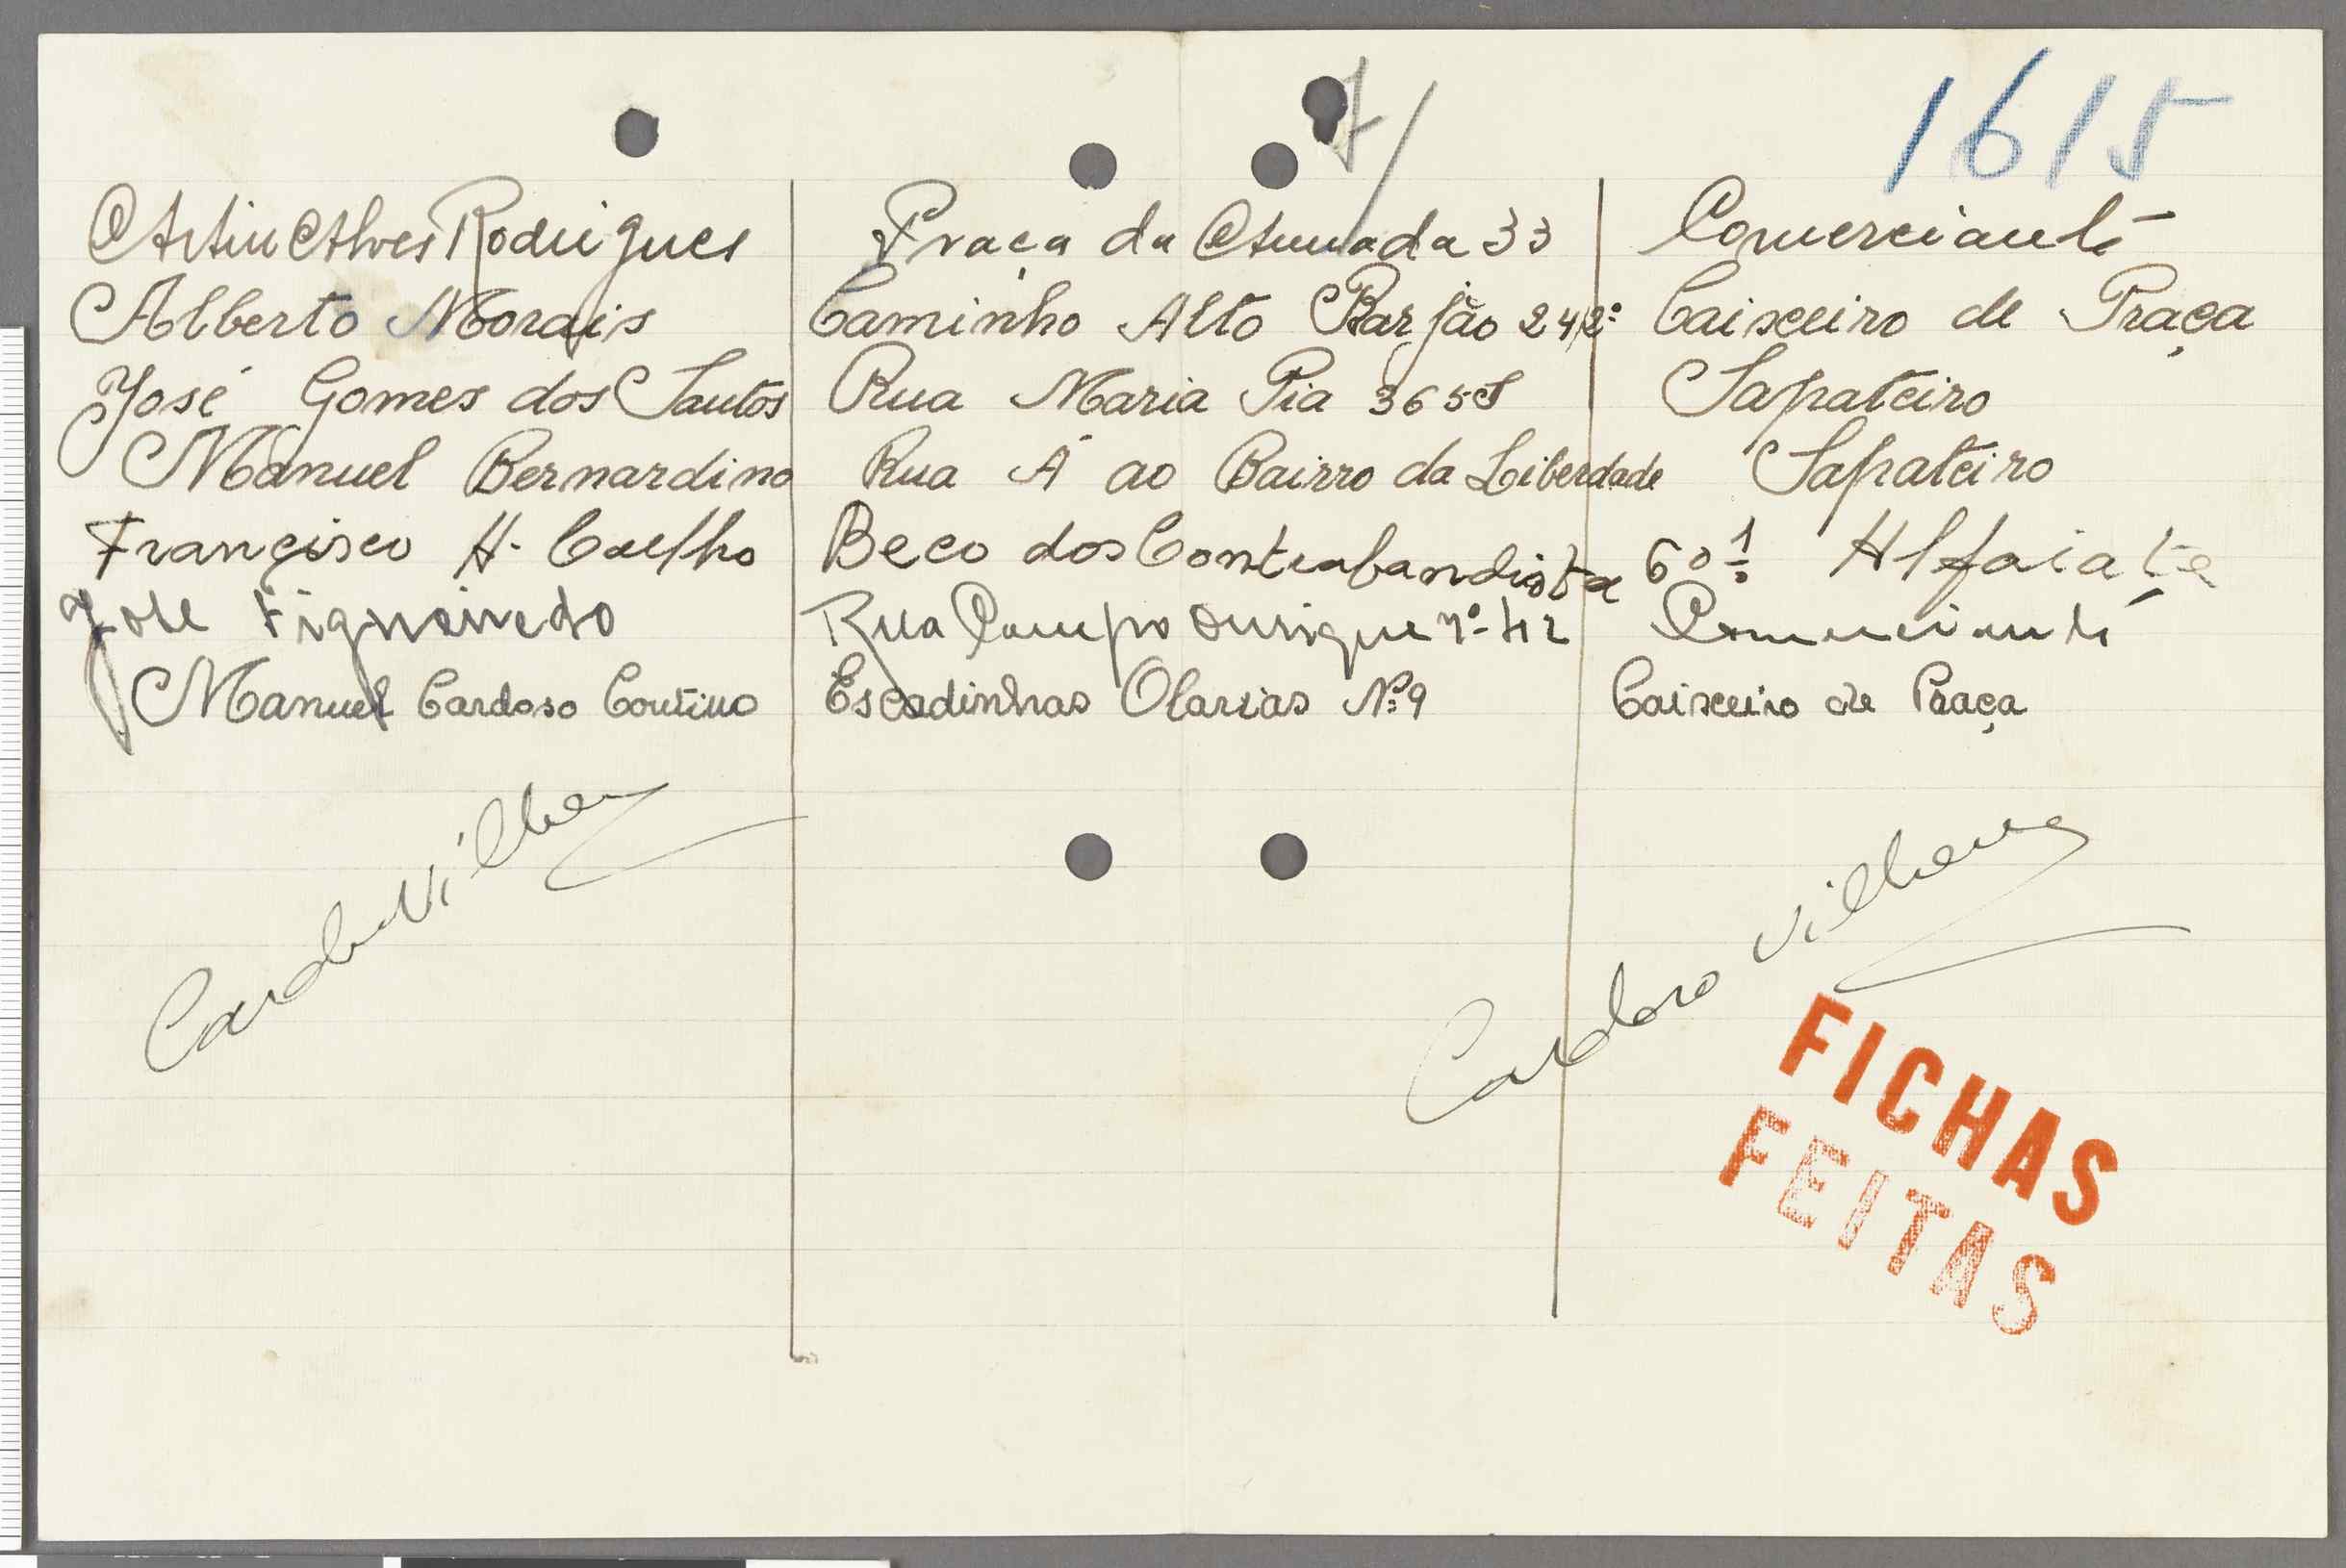 1615
7/
Artur Alves Rodrigues Praça da Armada 33 Comerciante
Alberto Morais Caminho Alto Varjão 24 2º Caixeiro de Praça
José Gomes dos Santos Rua Maria Pia 365 Sapateiro
Manuel Bernardino Rua A ao Bairro da Liberdade Sapateiro
Francisco A. Coelho Beco dos Contrabandista 60 1º Alfaiate
José Figueiredo Rua Campo Ourique nº 42 Comerciante
Manuel Cardoso Coutino Escadinhas Olarias Nº 9 Caixeiro de Praça
Cardoso Vilhena
Cardoso Vilhena
FICHAS
FEITAS